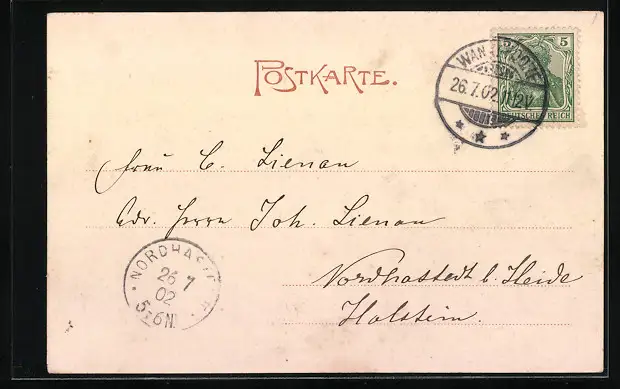 POSTKARTE.
5
DEUTSCHES REICH
26.7.02.11-12V
Frau C. Lienau
Adr. Herrn Joh. Lienau
Nordhastedt b. Heide
Holstein.
NORDHASTEDT
26 7
02
5-6N.